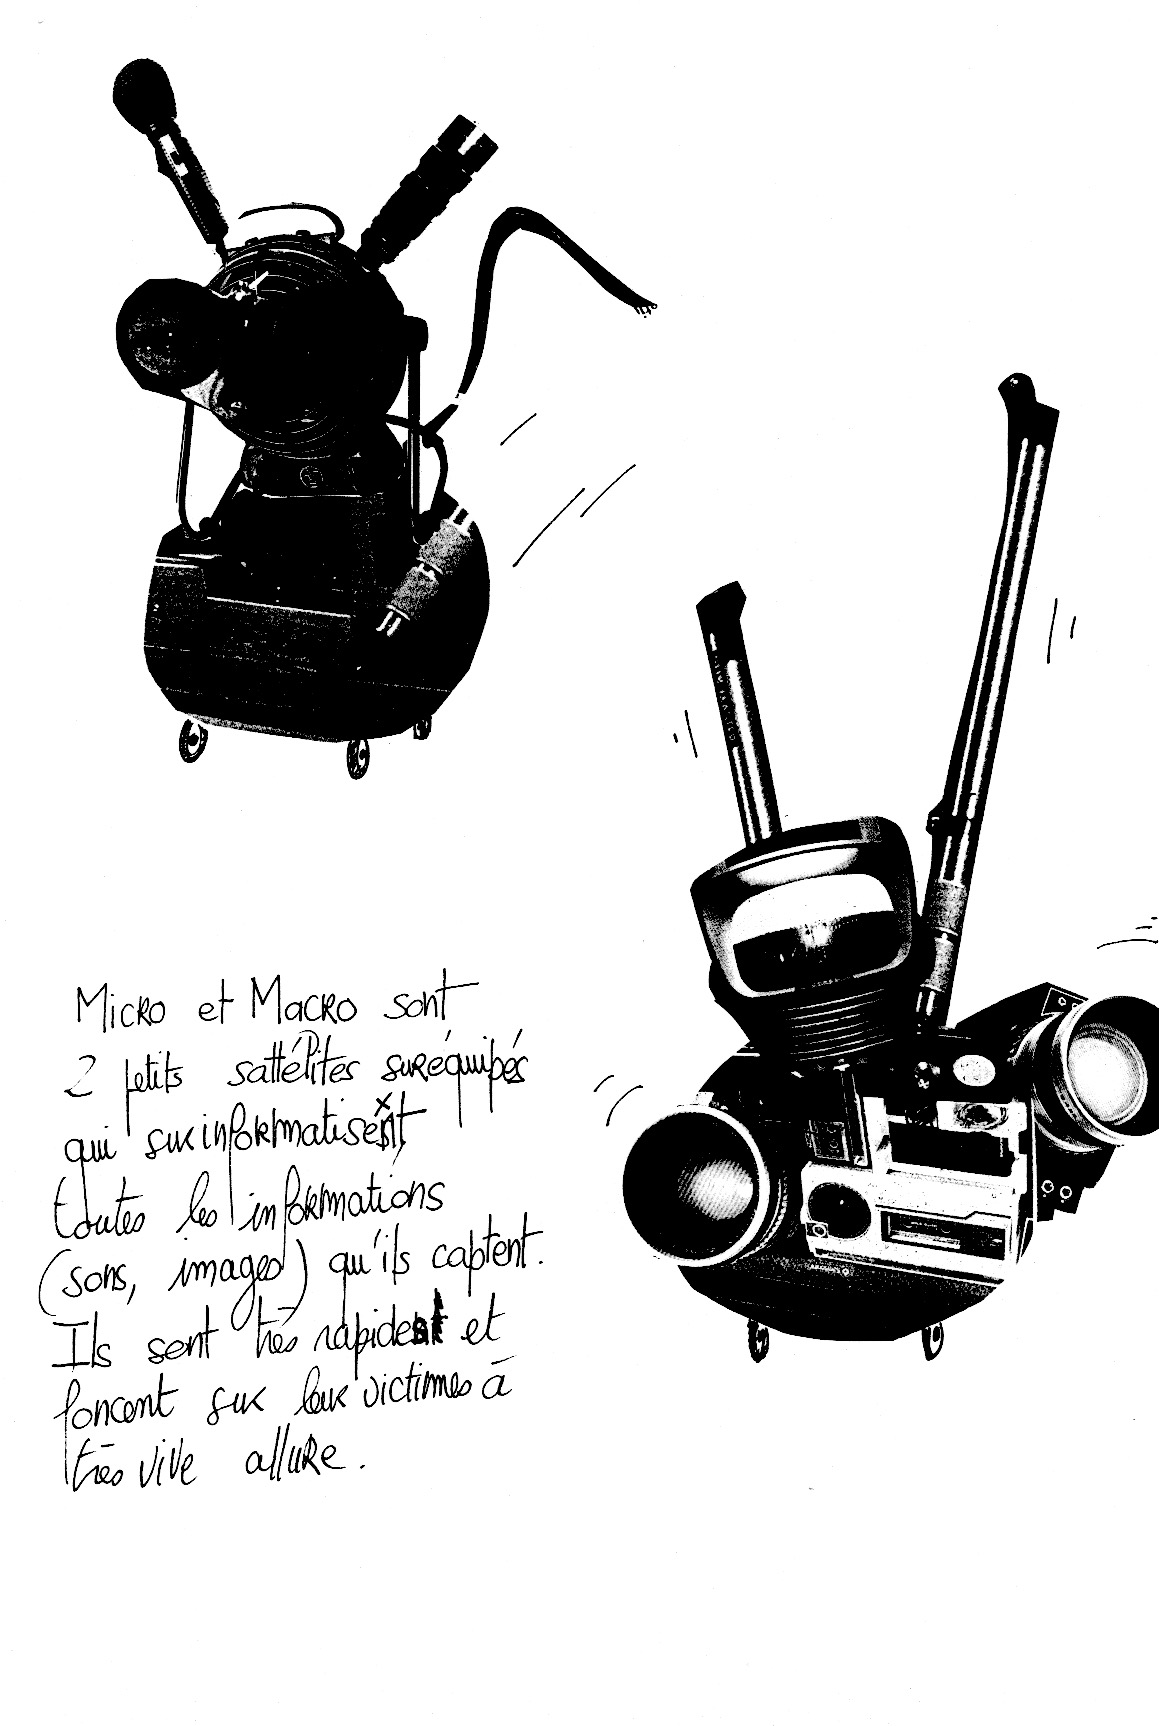 Micro et Macro sont
2 petits sattélites suréquipés
qui surinformatisent
toutes les informations
(sons, images) qu'ils captent.
Ils sont très rapides et
foncent sur leur victimes à
très vive allure.